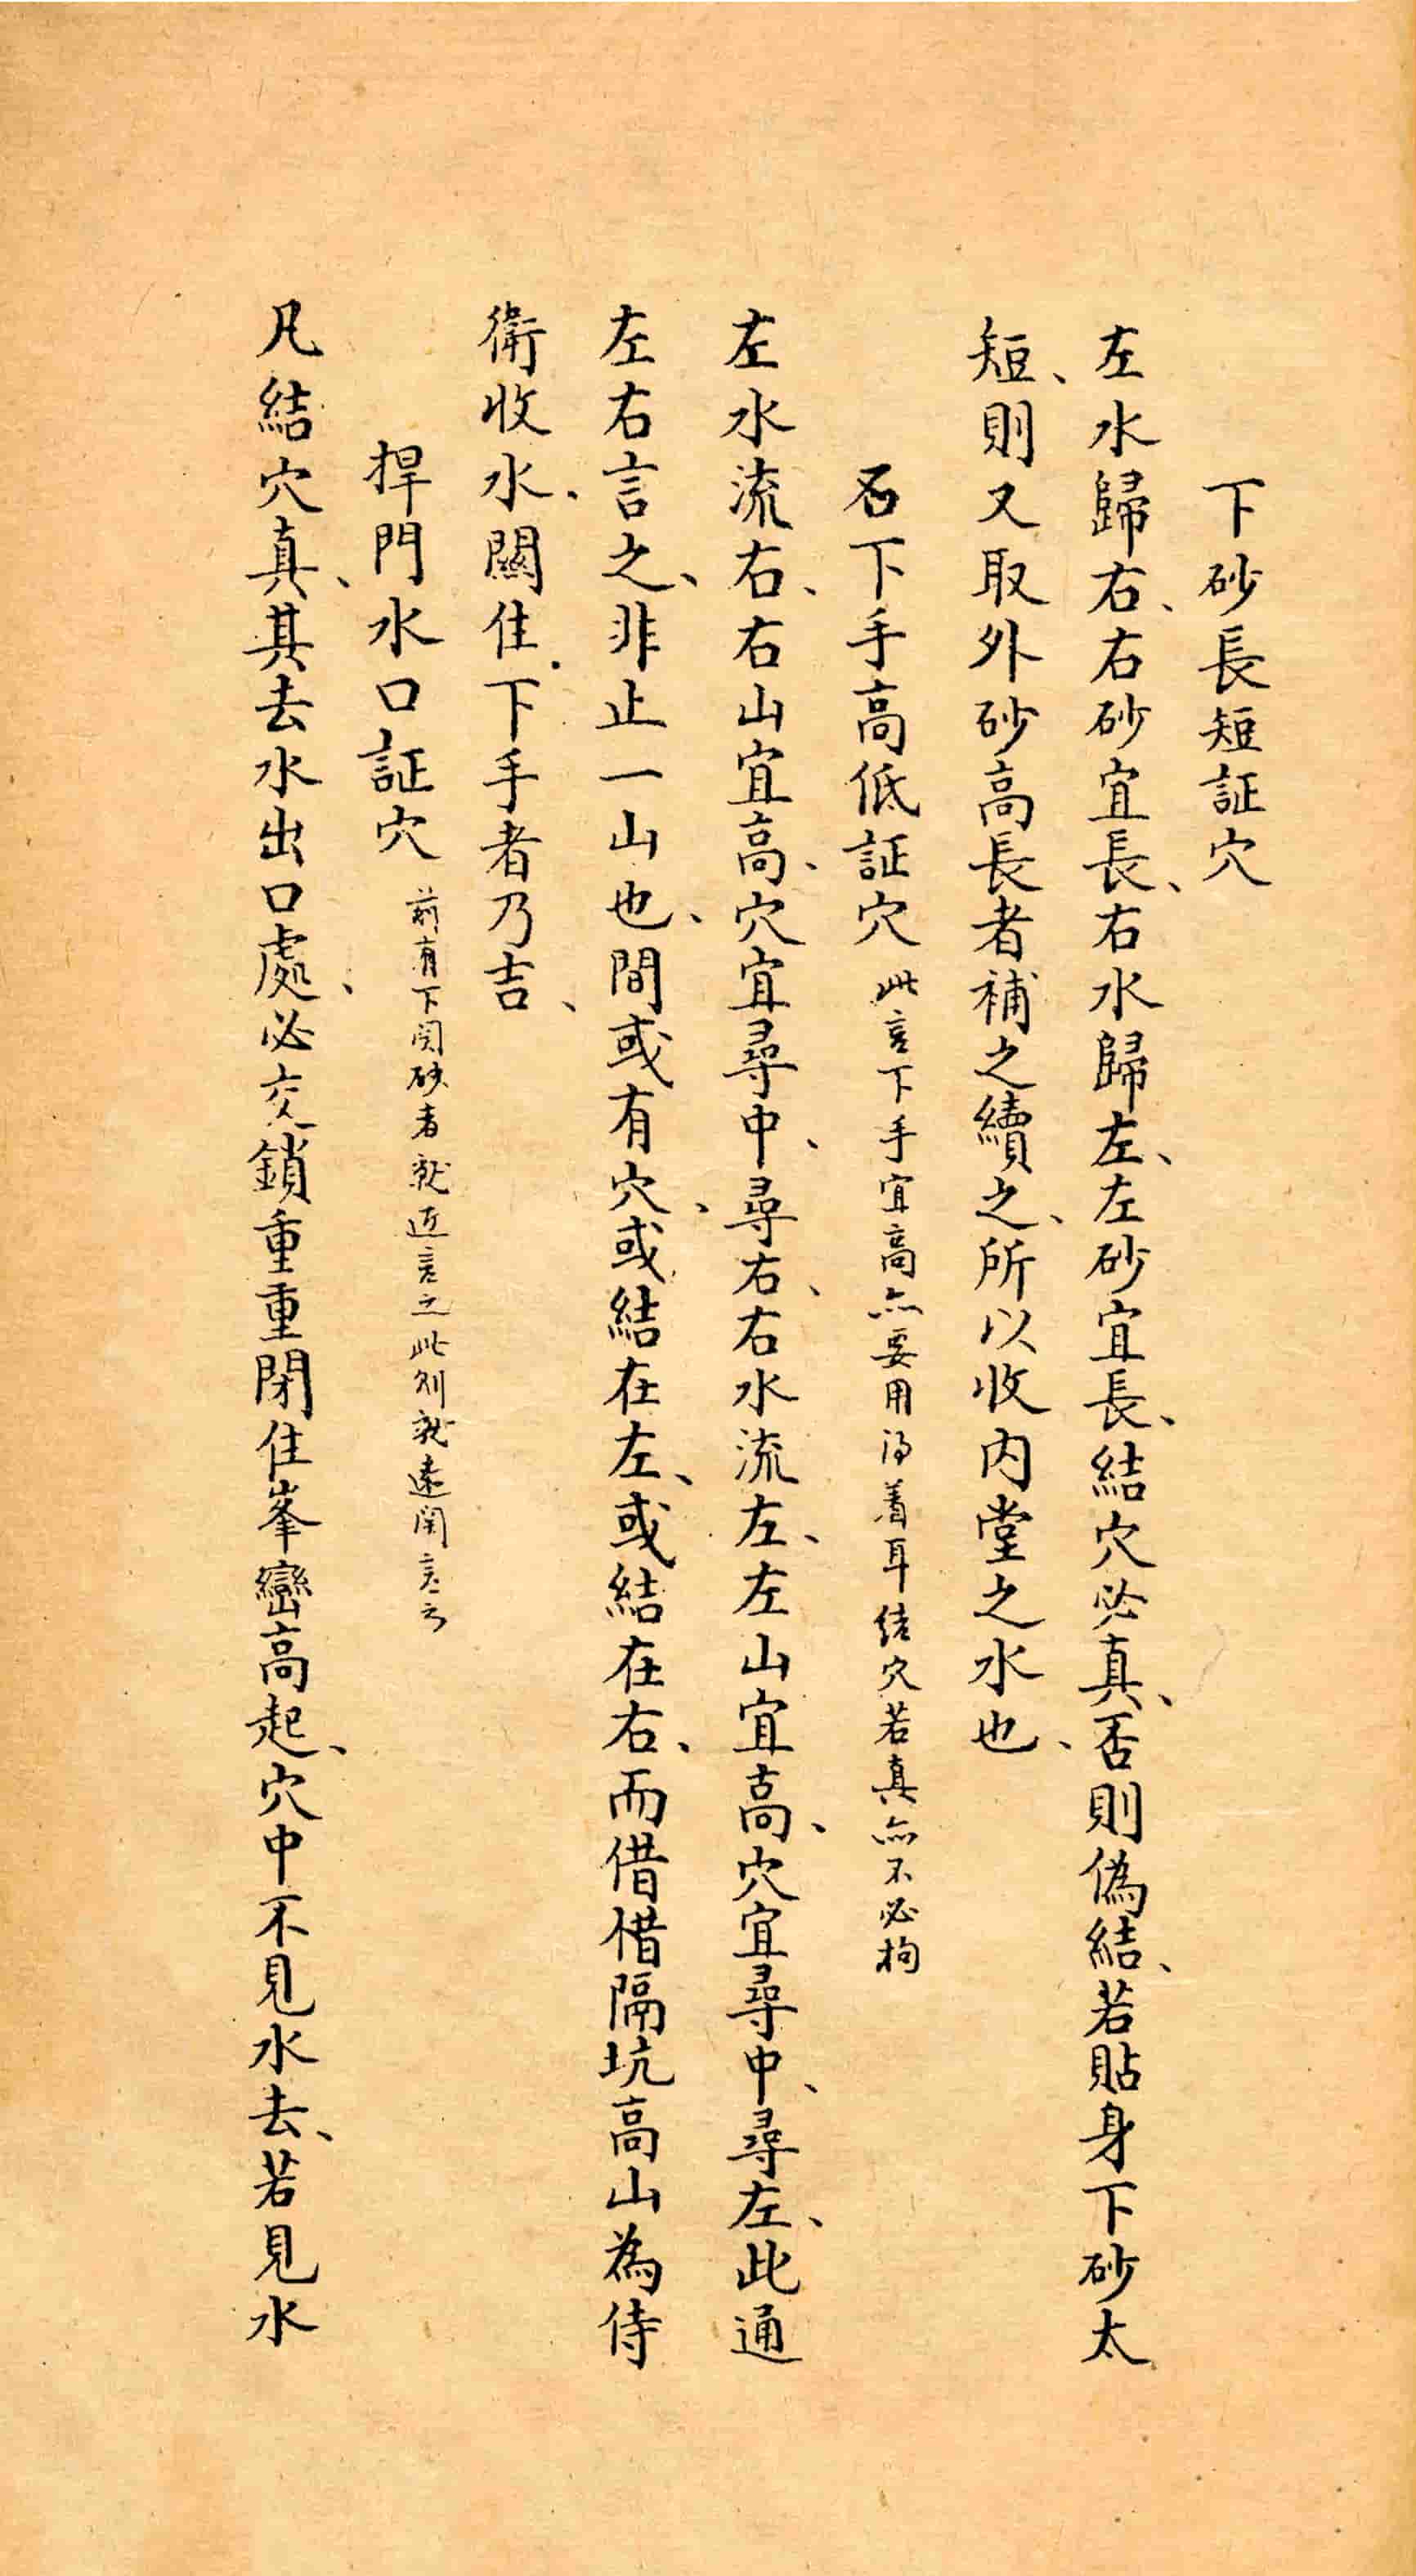 下砂長短証穴
左水歸右、右砂宜長、右水歸左、左砂宜長、結穴必真、否則偽結、若貼身下砂太
短、則又取外砂高長者補之續之、所以收內堂之水也、
名下手高低証穴 此言下手宜高亦要用得着耳結穴若真亦不必拘
左水流右、右山宜高、穴宜尋中、尋右、右水流左、左山宜高、穴宜尋中、尋左、此通
左右言之、非止一山也、間或有穴、或結在左、或結在右、而借借隔坑高山為侍
衛收水、關住、下手者乃吉、
捍門水口証穴 前有下関砂者就近言之此則就遠関言之
凡結穴真、其去水出口處、必交鎖重重閉住峯巒高起、穴中不見水去、若見水